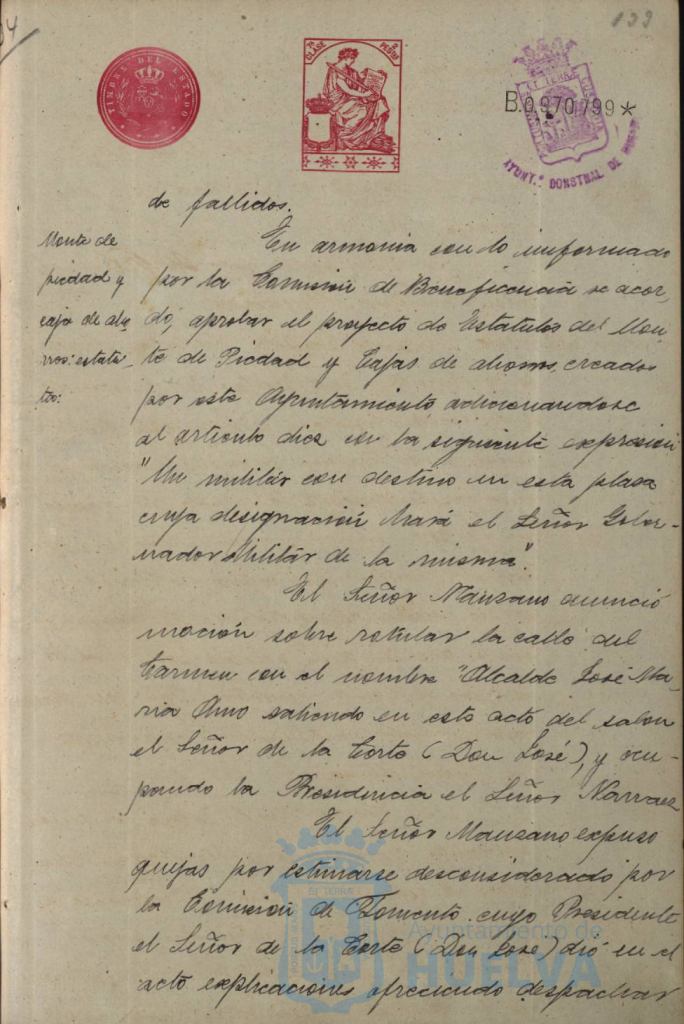 04
133
TIMBRE DEL ESTADO
7ª CLASE
2 PESOS
B.0.970.799*
AYUNT.º CONSTNAL DE HUELVA
de fallidos.
Monte de
piedad y
caja de aho
rros: estatu-
tos:
En armonia con lo informado
por la Comision de Beneficencia se acor,
dó, aprobar el proyecto de Estatutos del Mon-
te de Piedad y Cajas de ahorros, creados
por este Ayuntamiento adicionandose
al articulo diez con la siguiente expresion
"Un militar con destino en esta plaza
cuya designación hará el Señor Gober-
nador Militar de la misma".
El Señor Manzano anunció
moción sobre rotular la calle del
Carmen con el nombre "Alcalde José Ma-
ria Amo saliendo en este acto del salon
el Señor de la Corte (Don José), y ocu-
pando la Presidencia el Señor Narvaez
El Señor Manzano expuso
quejas por estimarse desconsiderado por
la Comision de Fomento cuyo Presidente
el Señor de la Corte (Don José) dió en el
acto explicaciones ofreciendo despachar
Ayuntamiento de
HUELVA